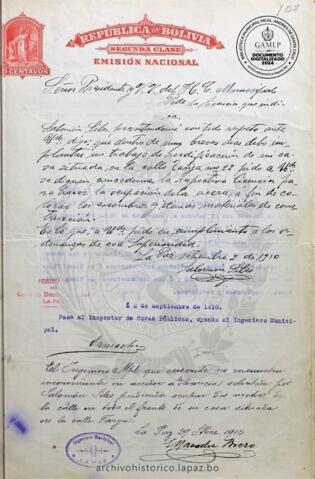 108
REPUBLICA DE BOLIVIA
SEGUNDA CLASE
EMISIÓN NACIONAL
CENTAVOS
GAMLP
DOCUMENTO
DIGITALIZADO
2024
Señor Presidente y V. V. del H. C. Municipal
Pide licencia que indica.
Salomón Siles, presentándome con todo respeto, ante
Uds. digo: que dentro de muy breves días debo im-
plantar un trabajo de reedificación de mi ca-
sa situada en la calle Tarija No. 22 pido a Uds.
se dignen concederme la respectiva licencia pa-
ra hacer la ocupación de la acera, a fin de co-
locar los escombros y demás materiales de cons-
trucción.
Es lo que a Uds. pido en cumplimiento a las or-
denanzas de esa Superioridad.
La Paz setiembre 2 de 1910
Salomón Siles
LA PAZ
2 de septiembre de 1910.
Pase al Inspector de Obras Públicas, oyendo al Ingeniero Munici-
pal.
El Ingeniero Mpal que suscribe no encuentra
inconveniente en acceder a licencia solicitada por
Salomón Siles pudiendo ocupar dos metros de
la calle en todo el frente de su casa situada
en la calle Tarija.
La Paz 1910
Ingeniero Municipal
LA PAZ
archivohistorico.lapaz.bo